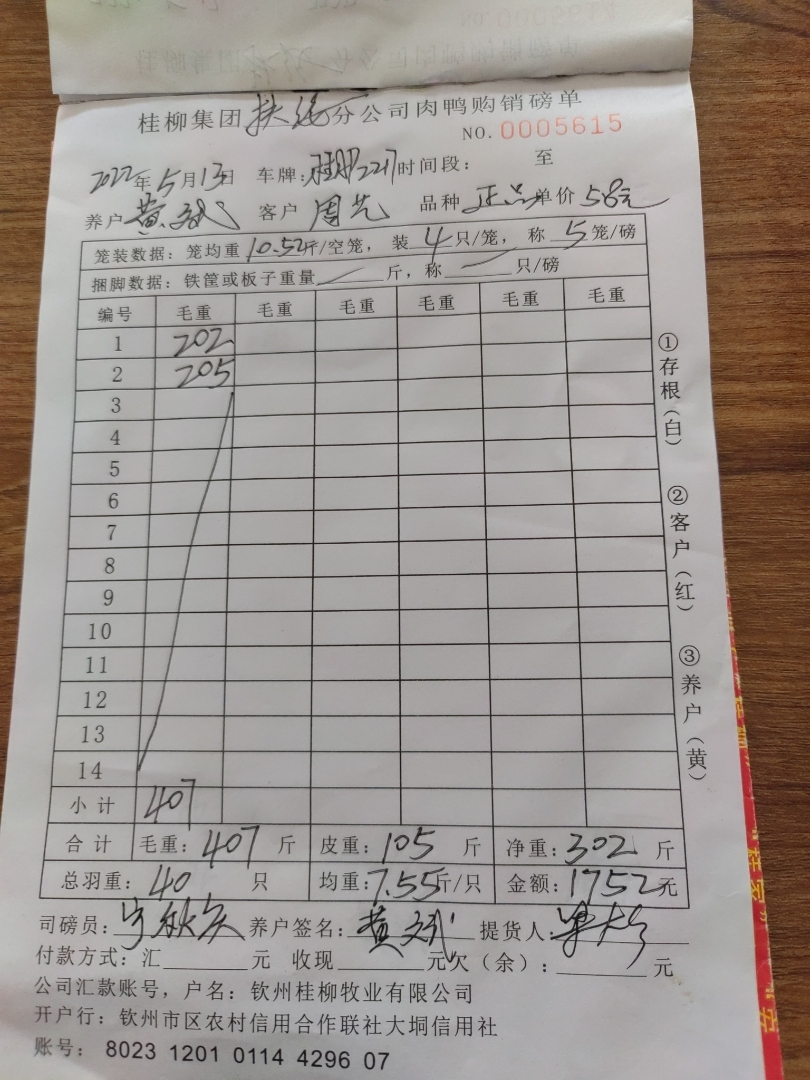 桂柳集团扶绥分公司肉鸭购销磅单
NO. 0005615
2022年5月13日 车牌: 2217 时间段: 至
养户 黄斌 客户 周艺 品种 正品 单价 5.8元
笼装数据: 笼均重 10.52斤/空笼, 装 4 只/笼, 称 5 笼/磅
捆脚数据: 铁筐或板子重量 斤, 称 只/磅
编号 毛重 毛重 毛重 毛重 毛重 毛重
1 202
2 205
3
4
5
6
7
8
9
10
11
12
13
14
小计 407
合计 毛重: 407 斤 皮重: 105 斤 净重: 302 斤
总羽重: 40 只 均重: 7.55斤/只 金额: 1752元
司磅员: 养户签名: 黄斌 提货人:
付款方式: 汇 元 收现 元欠(余): 元
公司汇款账号, 户名: 钦州桂柳牧业有限公司
开户行: 钦州市区农村信用合作联社大垌信用社
账号: 8023 1201 0114 4296 07
①存根(白)
②客户(红)
③养户(黄)